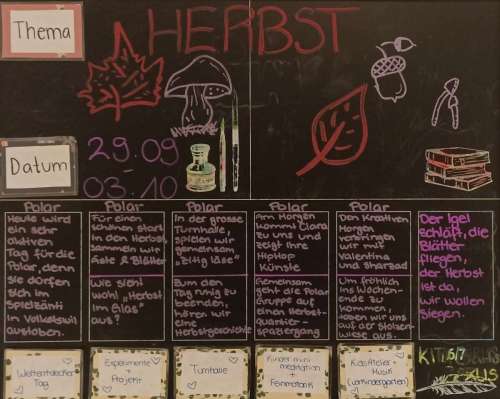 Thema
HERBST
Datum
29.09
-
03.10
Polar
Heute wird
ein sehr
aktiven
Tag für die
Polar, denn
sie dürfen
sich im
Spielzänti
in Volketswil
austoben.
Polar
Für einen
schönen Start
in den Herbst,
sammeln wir
Äste & Blätter
Wie sieht
wohl „Herbst
im Glas"
aus?
Polar
In der grosse
Turnhalle,
spielen wir
gemeinsam
Zum den
Tag ruhig zu
beenden,
hören wir
eine
Herbstgeschichte
Polar
Am Morgen
kommt Clara
zu uns und
zeigt ihre
HipHop
Künste
Gemeinsam
geht die Polar
Gruppe auf
einen Herbst-
quartier-
spaziergang
Polar
Den Kreativen
Morgen
verbringen
wir mit
Valentina
und Sharzad
Um fröhlich
ins Wochen-
ende zu
kommen,
toben wir uns
auf der Stolzen-
wiese aus.
Der Igel
schläft, die
Blätter
fliegen,
der Herbst
ist da,
wir wollen
siegen.
Weltentdecker
Tag
Experimente +
Projekt
Turnhalle
Kinder mini
meditation
+
Feinmotorik
KidsAtelier +
Musik
(vorkindergarten)